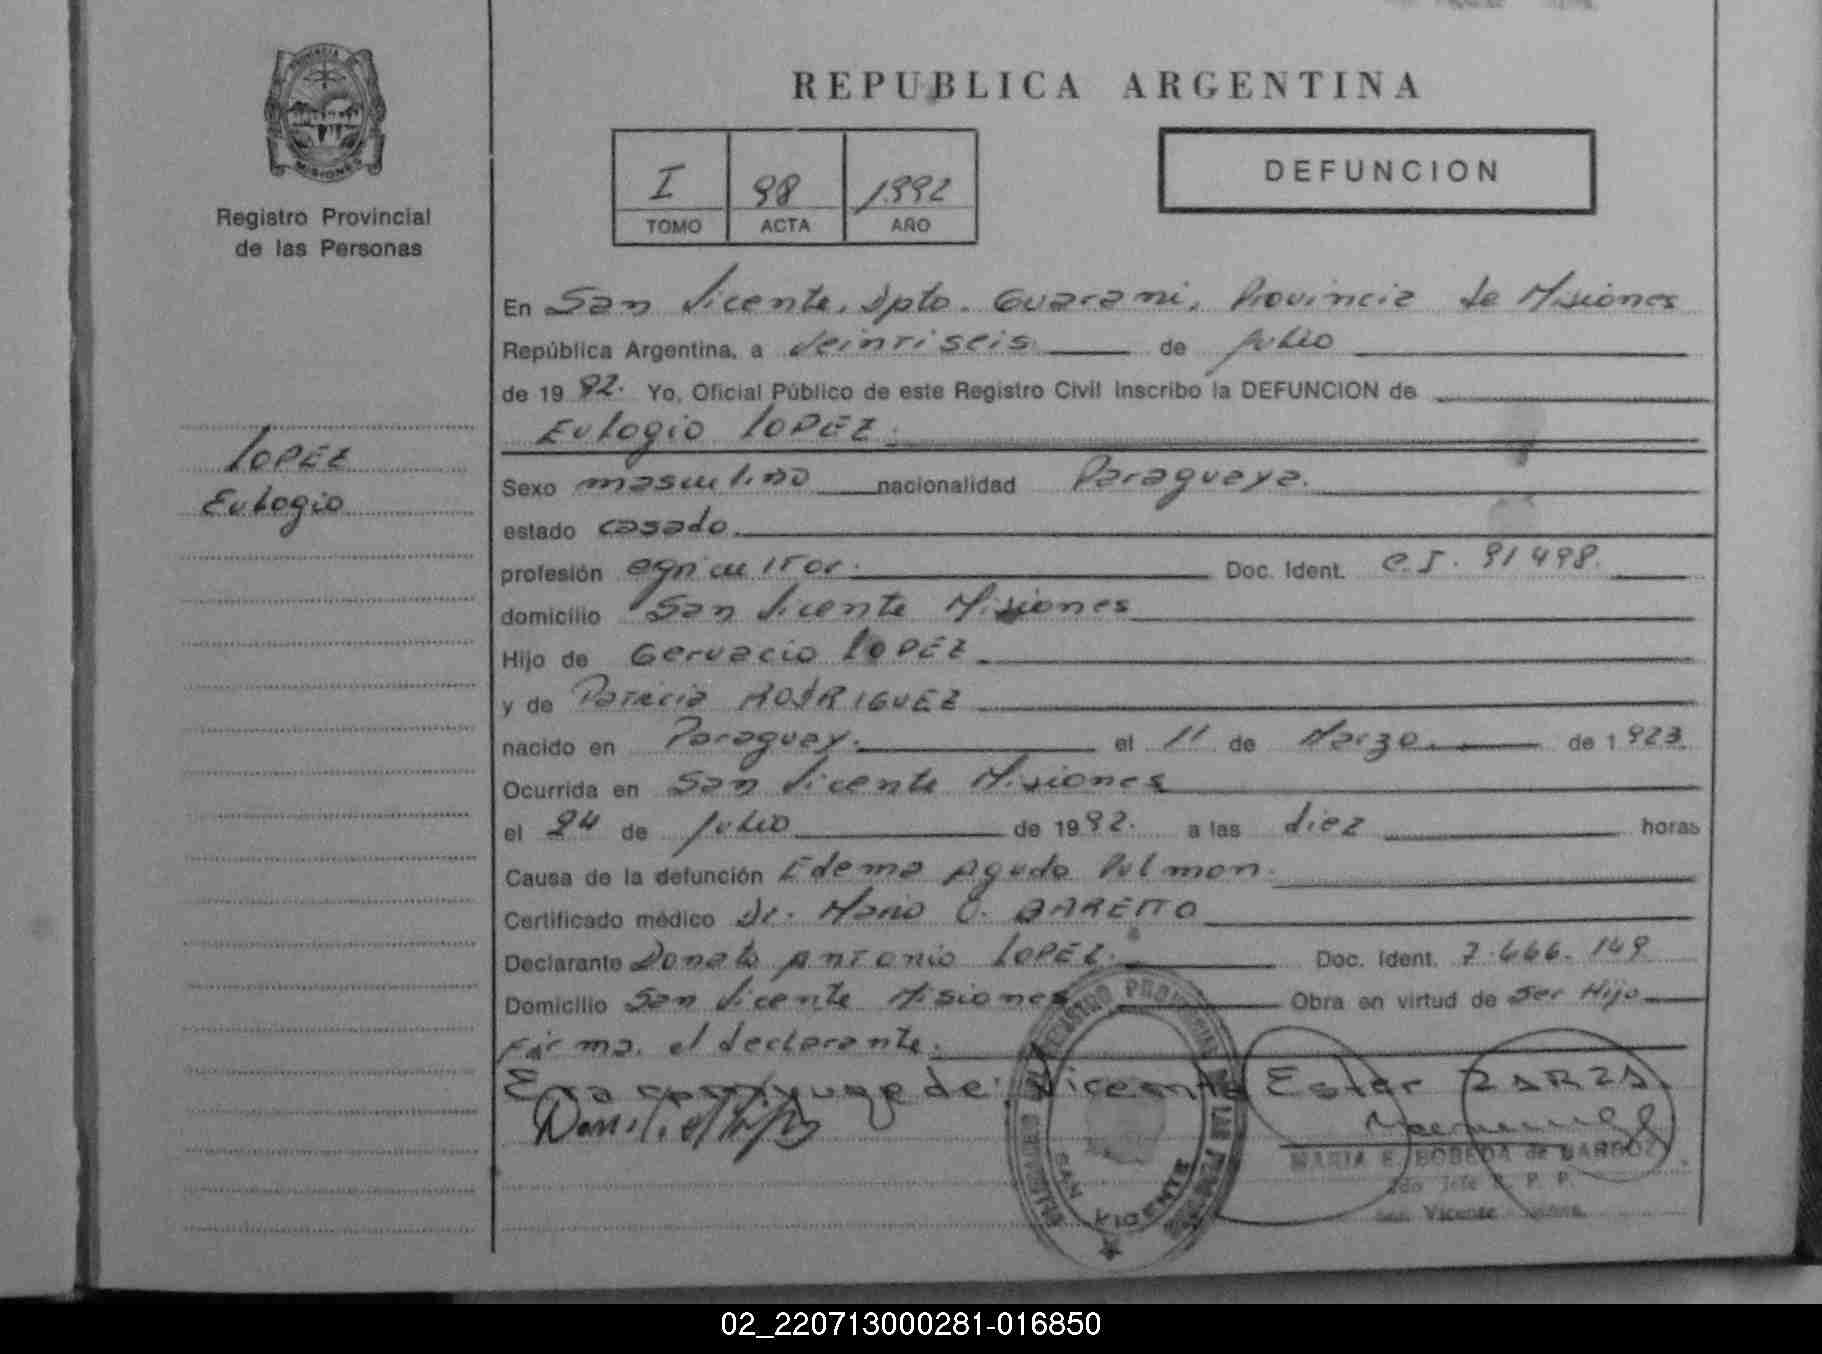 REPUBLICA ARGENTINA
PROVINCIA DE
MISIONES
Registro Provincial
de las Personas
I 98 1992
TOMO ACTA AÑO
DEFUNCION
En San Vicente, Dpto. Guarani, Provincia de Misiones
República Argentina, a Veintiseis de Julio
de 1992. Yo, Oficial Público de este Registro Civil inscribo la DEFUNCION de
Eulogio LOPEZ.
LOPEZ
Eulogio
Sexo masculino nacionalidad Paraguaya.
estado casado.
profesión agricultor. Doc. Ident. C.I. 91498.
domicilio San Vicente Misiones
Hijo de Gervacio LOPEZ
y de Patricia RODRIGUEZ
nacido en Paraguay. el 11 de Marzo. de 1923.
Ocurrida en San Vicente Misiones
el 24 de Julio de 1992. a las diez horas
Causa de la defunción Edema Agudo Pulmon.
Certificado médico Dr. Mario O. BAREITO
Declarante Donato Antonio LOPEZ. Doc. Ident. 7.666.149
Domicilio San Vicente Misiones. Obra en virtud de Ser Hijo
Firma. el declarante.
Era conyuge de: Vicenta Ester ZARZA
REGISTRO PROVINCIAL DE LAS PERSONAS
SAN VICENTE
MARIA E. BOBEDA de BARBOZ
2do Jefe R. P. P.
San Vicente
02_220713000281-016850